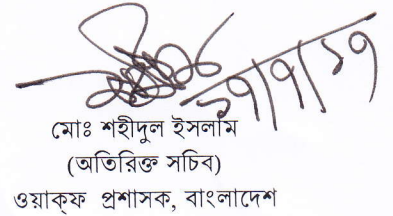 মোঃ শহীদুল ইসলাম
(অতিরিক্ত সচিব)
ওয়াক্ফ প্রশাসক, বাংলাদেশ